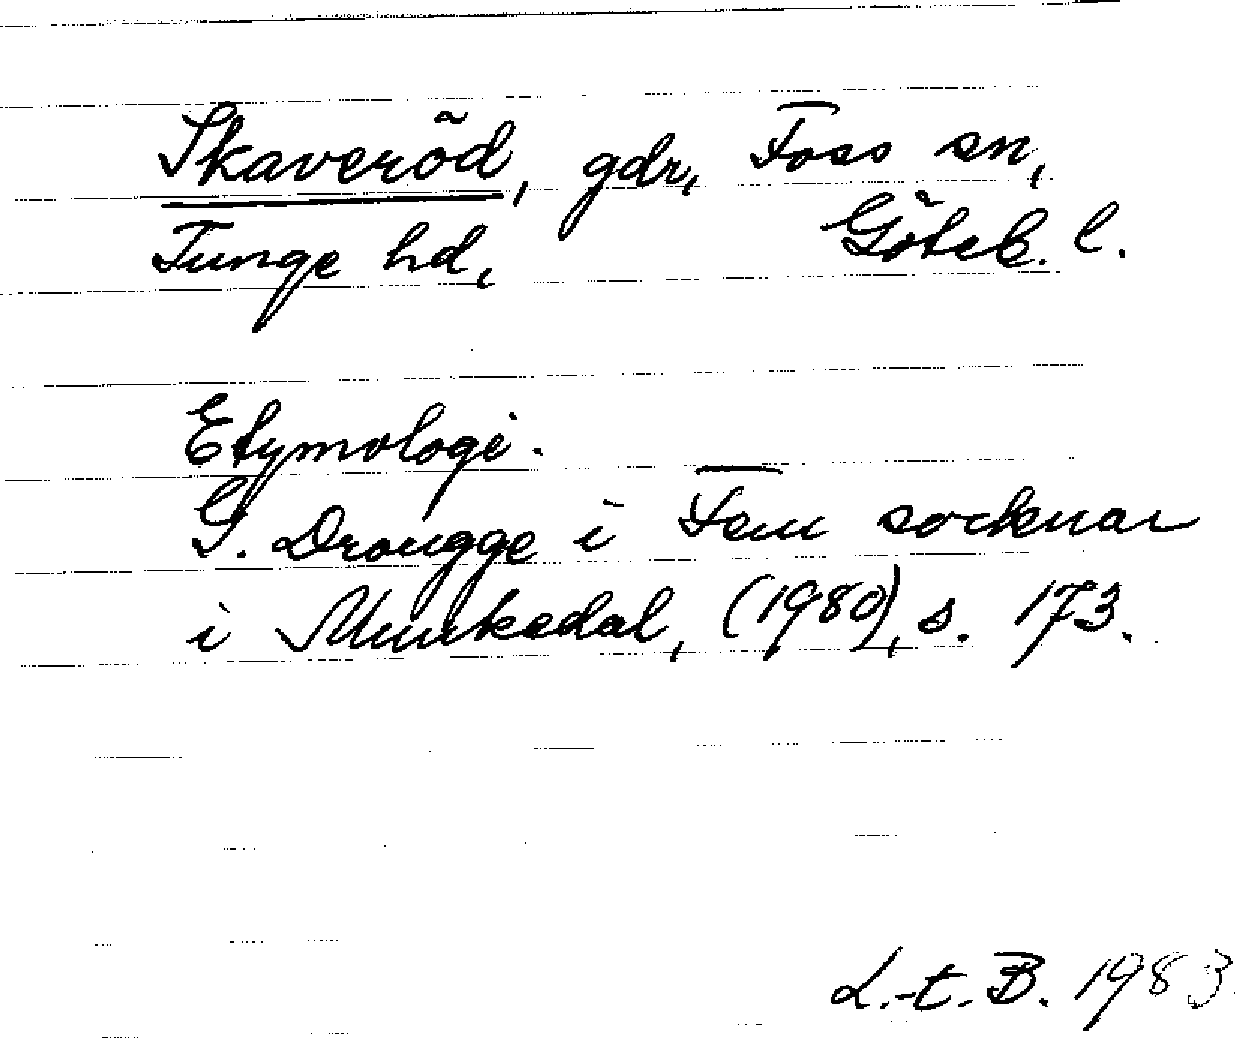 Skaveröd, gdr, Foss sn,
Tunge hd, Göteb. l.
Etymologi.
G. Drougge i Fem socknar
i Munkedal, (1980), s. 173.
L.-t. B. 1983